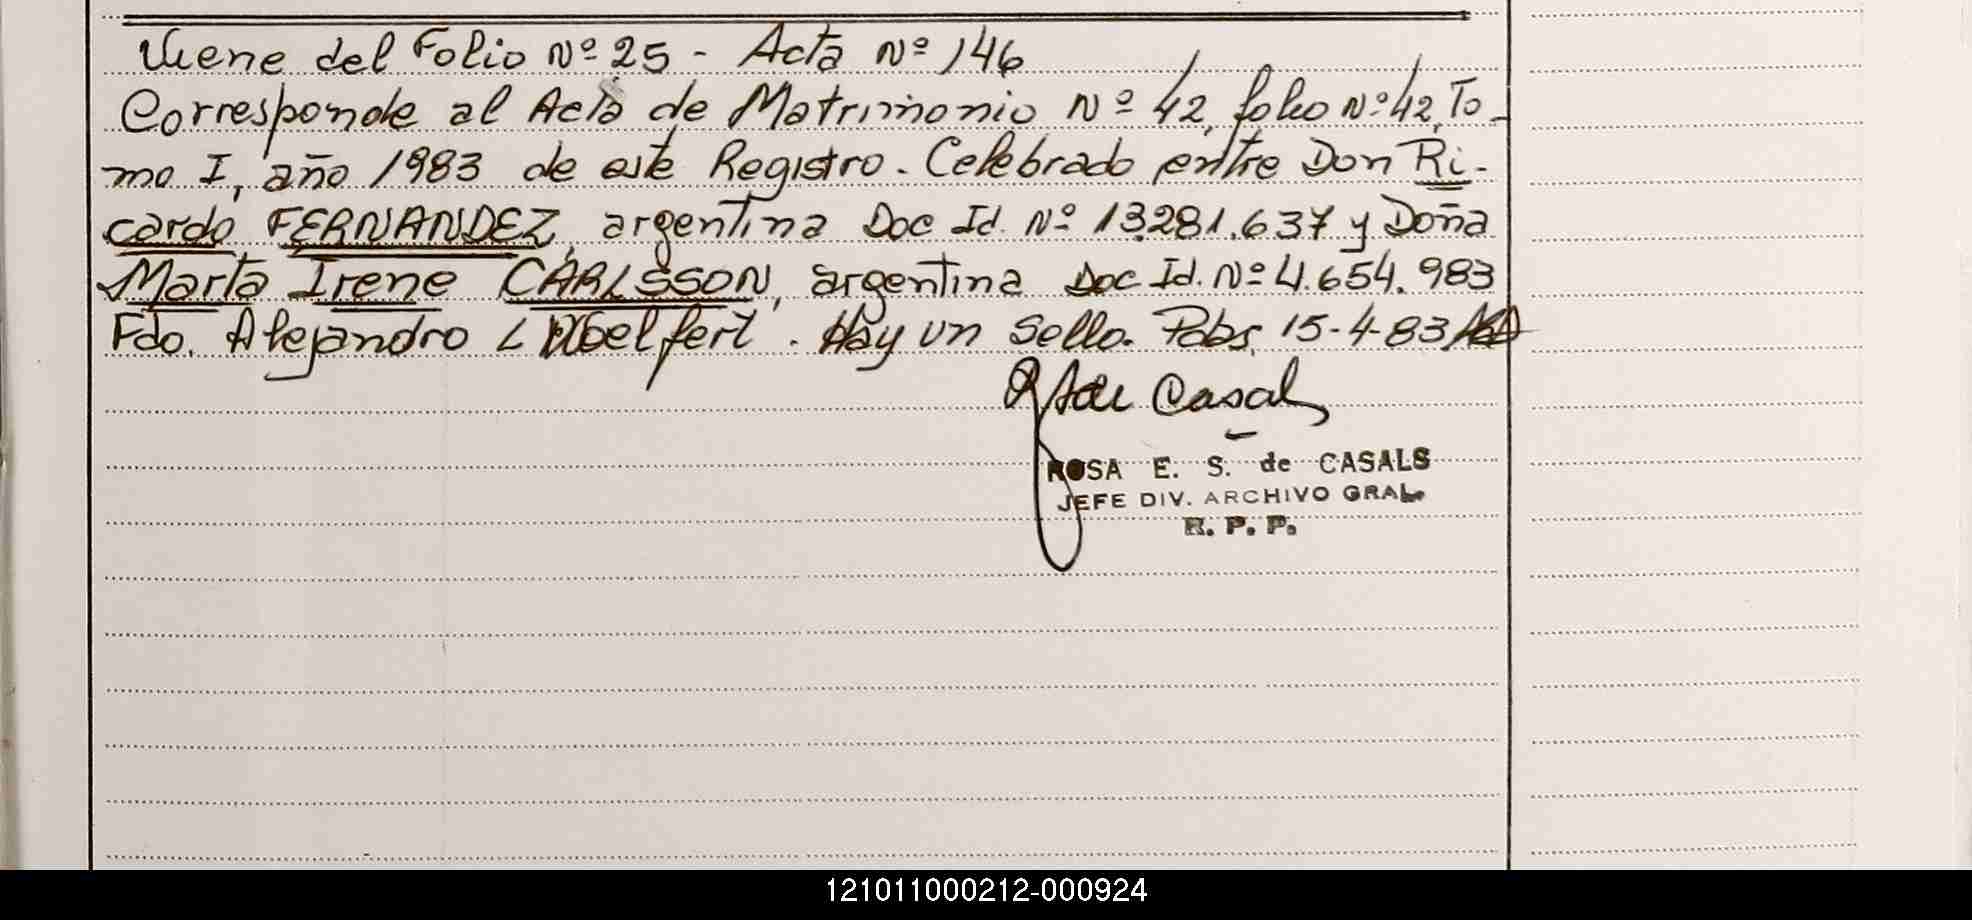 Viene del Folio Nº 25 - Acta Nº 146
Corresponde al Acta de Matrimonio Nº 42, folio Nº 42, To-
mo I, año 1983 de este Registro. Celebrado entre Don Ri-
cardo FERNANDEZ, argentina Doc Id. Nº 13.281.637 y Doña
Marta Irene CARLSSON, argentina Doc Id. Nº 4.654.983
Fdo. Alejandro L. Hay un Sello. Pdas, 15-4-83
de Casals
ROSA E. S. de CASALS
JEFE DIV. ARCHIVO GRAL.
R. P. P.
121011000212-000924